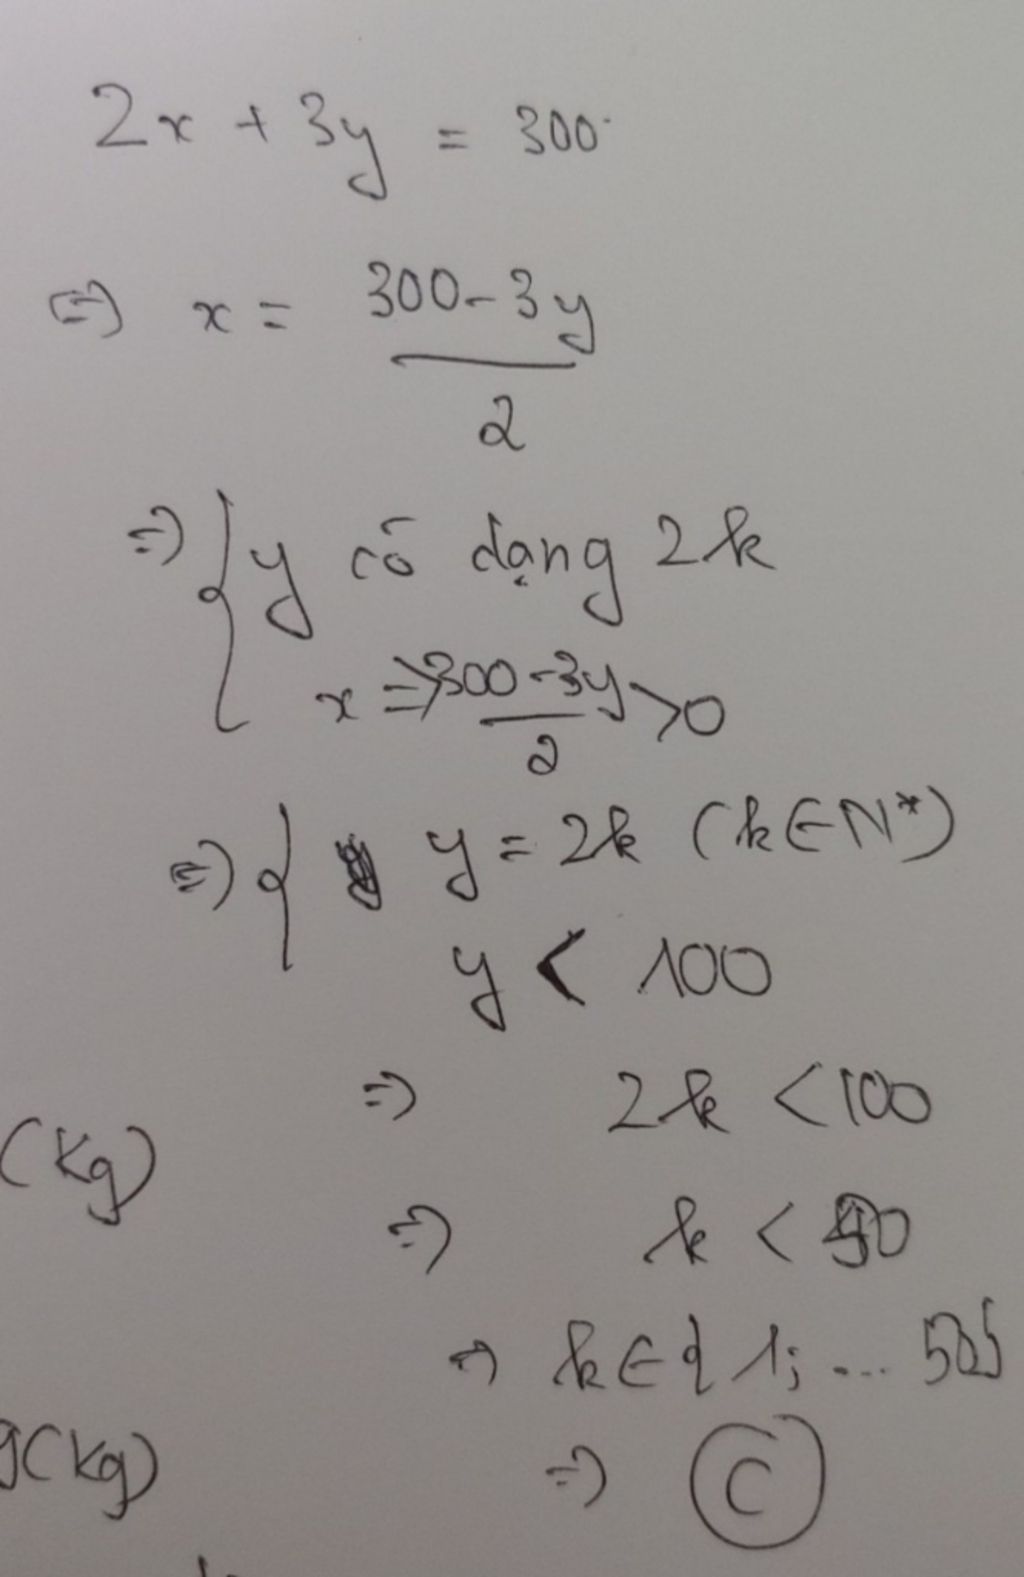 2x + 3y = 300
⇔ x = 300-3y
2
⇒ { y có dạng 2k
x = 300-3y > 0
2
⇒ { y = 2k (k∈N*)
y < 100
⇒ 2k < 100
(kg)
⇒ k < 50
⇒ k∈{1; ... 50}
(kg)
⇒ C